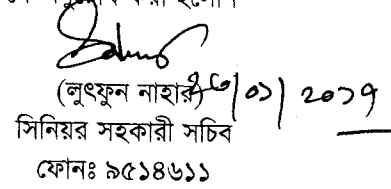 (লুৎফুন নাহার) ২৩/০১/২০১৭
সিনিয়র সহকারী সচিব
ফোনঃ ৯৫১৪৬১১